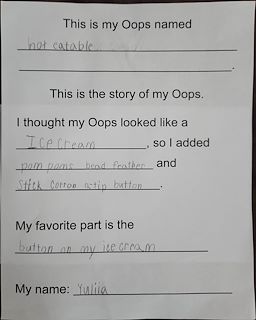 This is my Oops named
hot catable
This is the story of my Oops.
I thought my Oops looked like a
Ice cream, so I added
pom poms bead feather and
Stick Corron qtip button.
My favorite part is the
button on my ice cream
My name: Yuliia